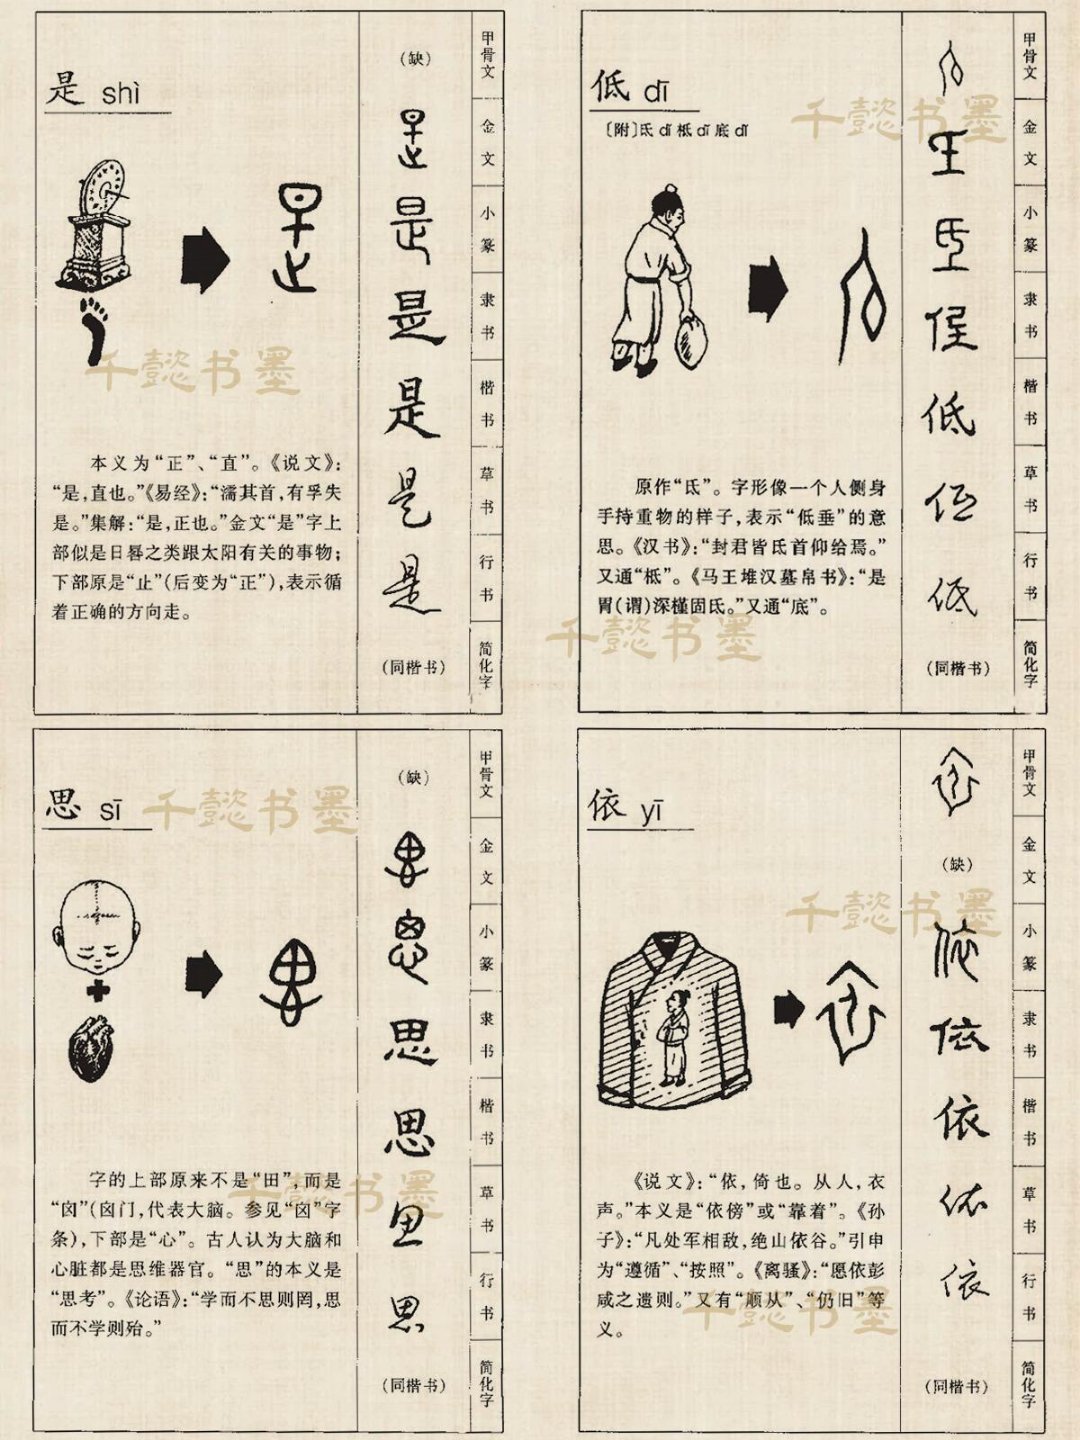 是 shì
本义为“正”、“直”。《说文》：
“是，直也。”《易经》：“濡其首，有孚失
是。”集解：“是，正也。”金文“是”字上
部似是日晷之类跟太阳有关的事物；
下部原是“止”（后变为“正”），表示循
着正确的方向走。
（缺）
是
是
是
是
是
是
（同楷书）
甲骨文
金文
小篆
隶书
楷书
草书
行书
简化字
低 dī
〔附〕氐 dī 柢 dǐ 底 dǐ
原作“氐”。字形像一个人侧身
手持重物的样子，表示“低垂”的意
思。《汉书》：“封君皆氐首仰给焉。”
又通“柢”。《马王堆汉墓帛书》：“是
胃（谓）深槿固氐。”又通“底”。
氐
氐
低
低
低
低
（同楷书）
甲骨文
金文
小篆
隶书
楷书
草书
行书
简化字
思 sī
字的上部原来不是“田”，而是
“囟”（囟门，代表大脑。参见“囟”字
条），下部是“心”。古人认为大脑和
心脏都是思维器官。“思”的本义是
“思考”。《论语》：“学而不思则罔，思
而不学则殆。”
（缺）
思
思
思
思
思
思
（同楷书）
甲骨文
金文
小篆
隶书
楷书
草书
行书
简化字
依 yī
《说文》：“依，倚也。从人，衣
声。”本义是“依傍”或“靠着”。《孙
子》：“凡处军相敌，绝山依谷。”引申
为“遵循”、“按照”。《离骚》：“愿依彭
咸之遗则。”又有“顺从”、“仍旧”等
义。
依
（缺）
依
依
依
依
依
（同楷书）
甲骨文
金文
小篆
隶书
楷书
草书
行书
简化字
千懿书墨
千懿书墨
千懿书墨
千懿书墨
千懿书墨
千懿书墨
千懿书墨